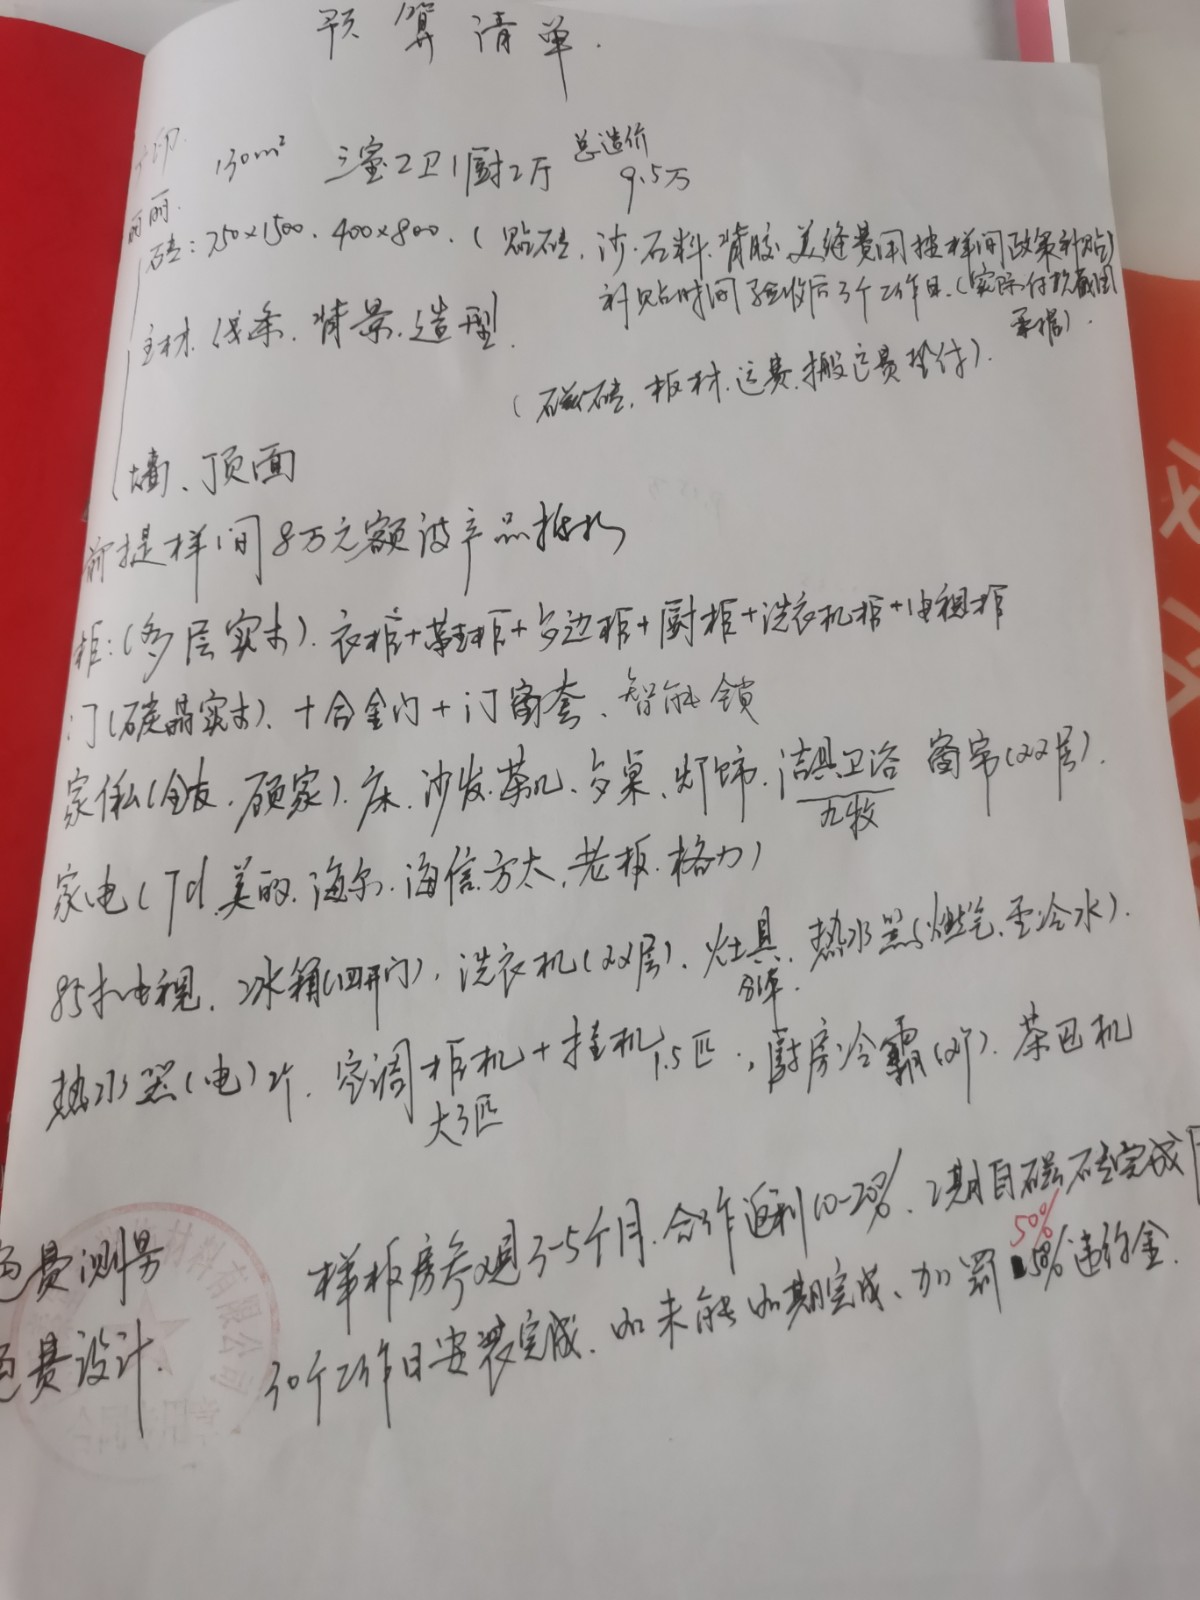 预算清单.
130m² 三室2卫1厨2厅 总造价
9.5万
丽丽.
砖:750×1500、400×800、(贴砖、沙、石料、背胶、美缝费用按样间政策补贴)
补贴时间验收后3个工作日、(实际付款截图
票据).
主材、线条、背景、造型.
(磁砖、板材、运费、搬运费垫付).
墙、顶面
前提样间8万元额度产品
柜:(多层实木)、衣柜+鞋柜+歺边柜+厨柜+洗衣机柜+电视柜
门(碳晶实木)、+合金门+门窗套、智能锁
家俬(全友、顾家)、床、沙发、茶几、歺桌、灯饰、洁具卫浴 窗帘(双层).
九牧
家电(Tcl、美的、海尔、海信、方太、老板、格力)
85寸电视、冰箱(四开门)、洗衣机(双层)、灶具、热水器(燃气、至冷水).
热水器(电)2个、空调柜机+挂机1.5匹、厨房冷霸(2个)、茶巴机
大3匹
材料有限公司
免费测量
免费设计.
样板房参观3-5个月、合作返利10-20%、2期自磁砖完成
50%
30个工作日安装完成、如未能如期完成、加罚50%违约金.